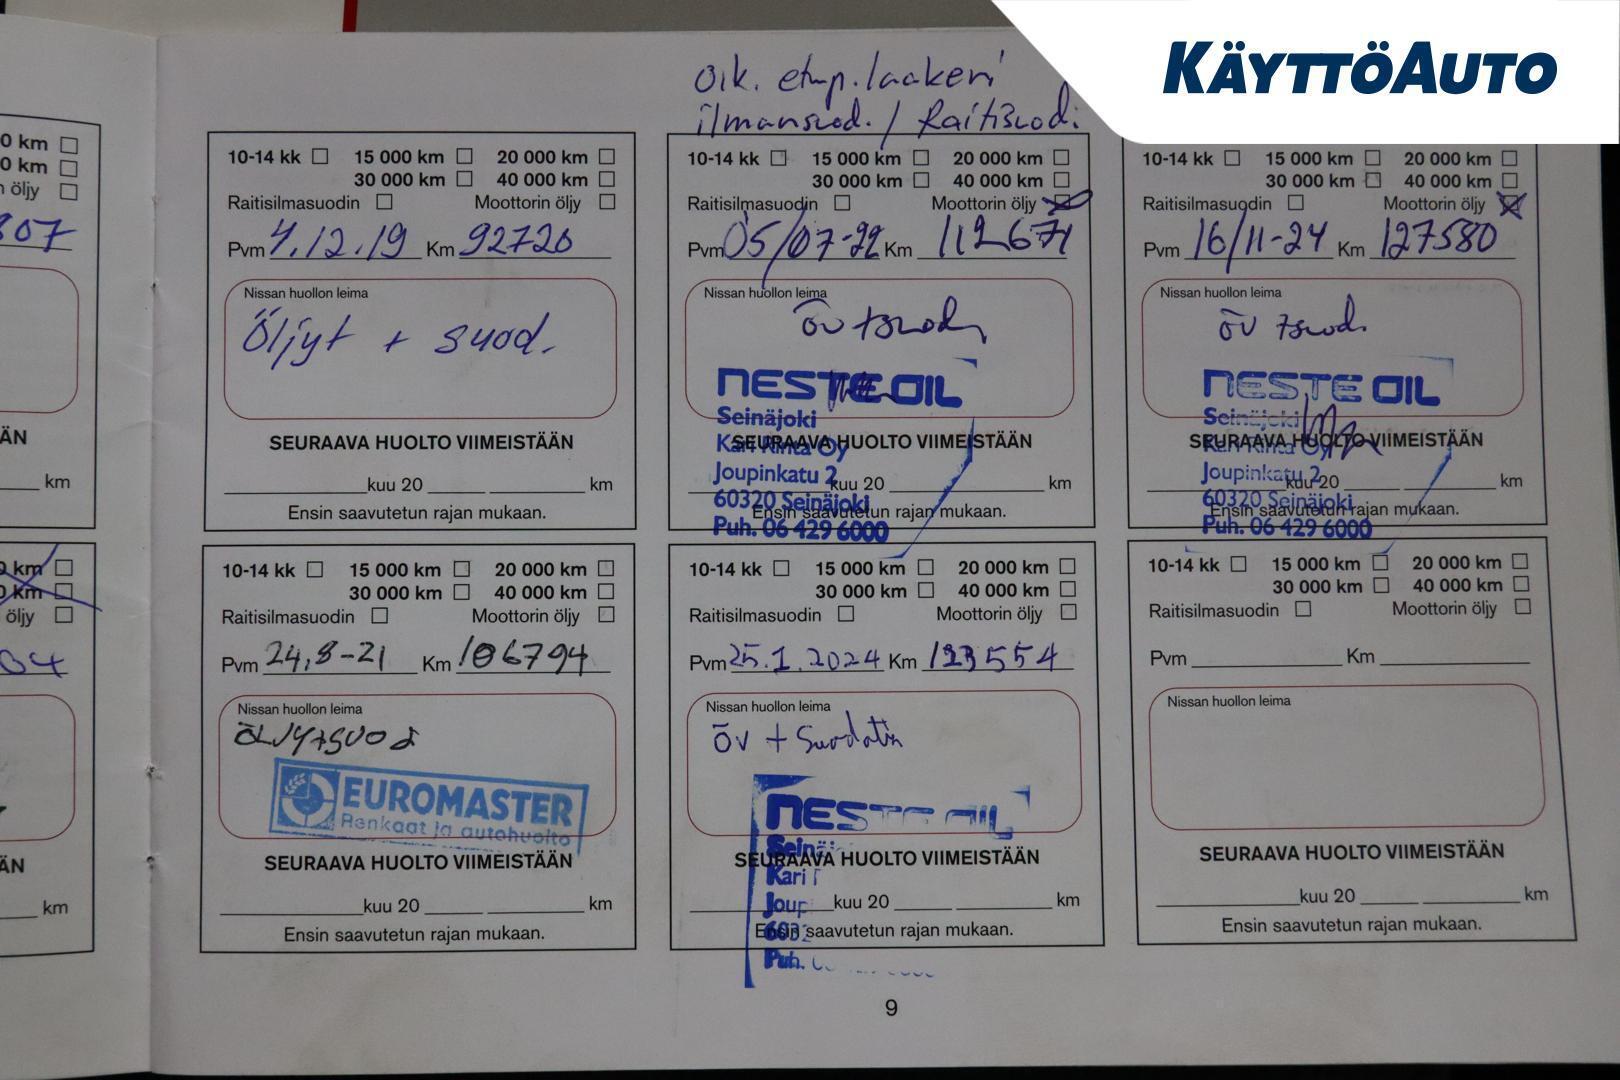 KÄYTTÖAUTO
Oik. etup. laakeri
ilmansuod. / Raitisuod.
0 km
0 km
n öljy
307
ÄN
km
0 km
0 km
öljy
04
ÄN
km
10-14 kk 15 000 km 20 000 km
30 000 km 40 000 km
Raitisilmasuodin Moottorin öljy
Pvm 4.12.19 Km 92720
Nissan huollon leima
Öljyt + suod.
SEURAAVA HUOLTO VIIMEISTÄÄN
kuu 20 km
Ensin saavutetun rajan mukaan.
10-14 kk 15 000 km 20 000 km
30 000 km 40 000 km
Raitisilmasuodin Moottorin öljy
Pvm 24,8-21 Km 106794
Nissan huollon leima
ÖLJY+SUOD
EUROMASTER
Renkaat ja autohuolto
SEURAAVA HUOLTO VIIMEISTÄÄN
kuu 20 km
Ensin saavutetun rajan mukaan.
10-14 kk 15 000 km 20 000 km
30 000 km 40 000 km
Raitisilmasuodin Moottorin öljy
Pvm 05/07-22 Km 112671
Nissan huollon leima
öv + suod.
NESTE OIL
Seinäjoki
Kari Rinta Oy
SEURAAVA HUOLTO VIIMEISTÄÄN
Joupinkatu 2
kuu 20 km
60320 Seinäjoki
Ensin saavutetun rajan mukaan.
Puh. 06 429 6000
10-14 kk 15 000 km 20 000 km
30 000 km 40 000 km
Raitisilmasuodin Moottorin öljy
Pvm 25.1.2024 Km 123554
Nissan huollon leima
öv + Suodatin
NESTE OIL
Seinäj
SEURAAVA HUOLTO VIIMEISTÄÄN
Kari
Joup
kuu 20 km
6032
Ensin saavutetun rajan mukaan.
Puh.
10-14 kk 15 000 km 20 000 km
30 000 km 40 000 km
Raitisilmasuodin Moottorin öljy
Pvm 16/11-24 Km 127580
Nissan huollon leima
öv + suod.
NESTE OIL
Seinäjoki
Kari Rinta Oy
SEURAAVA HUOLTO VIIMEISTÄÄN
Joupinkatu 2
kuu 20 km
60320 Seinäjoki
Ensin saavutetun rajan mukaan.
Puh. 06 429 6000
10-14 kk 15 000 km 20 000 km
30 000 km 40 000 km
Raitisilmasuodin Moottorin öljy
Pvm Km
Nissan huollon leima
SEURAAVA HUOLTO VIIMEISTÄÄN
kuu 20 km
Ensin saavutetun rajan mukaan.
9